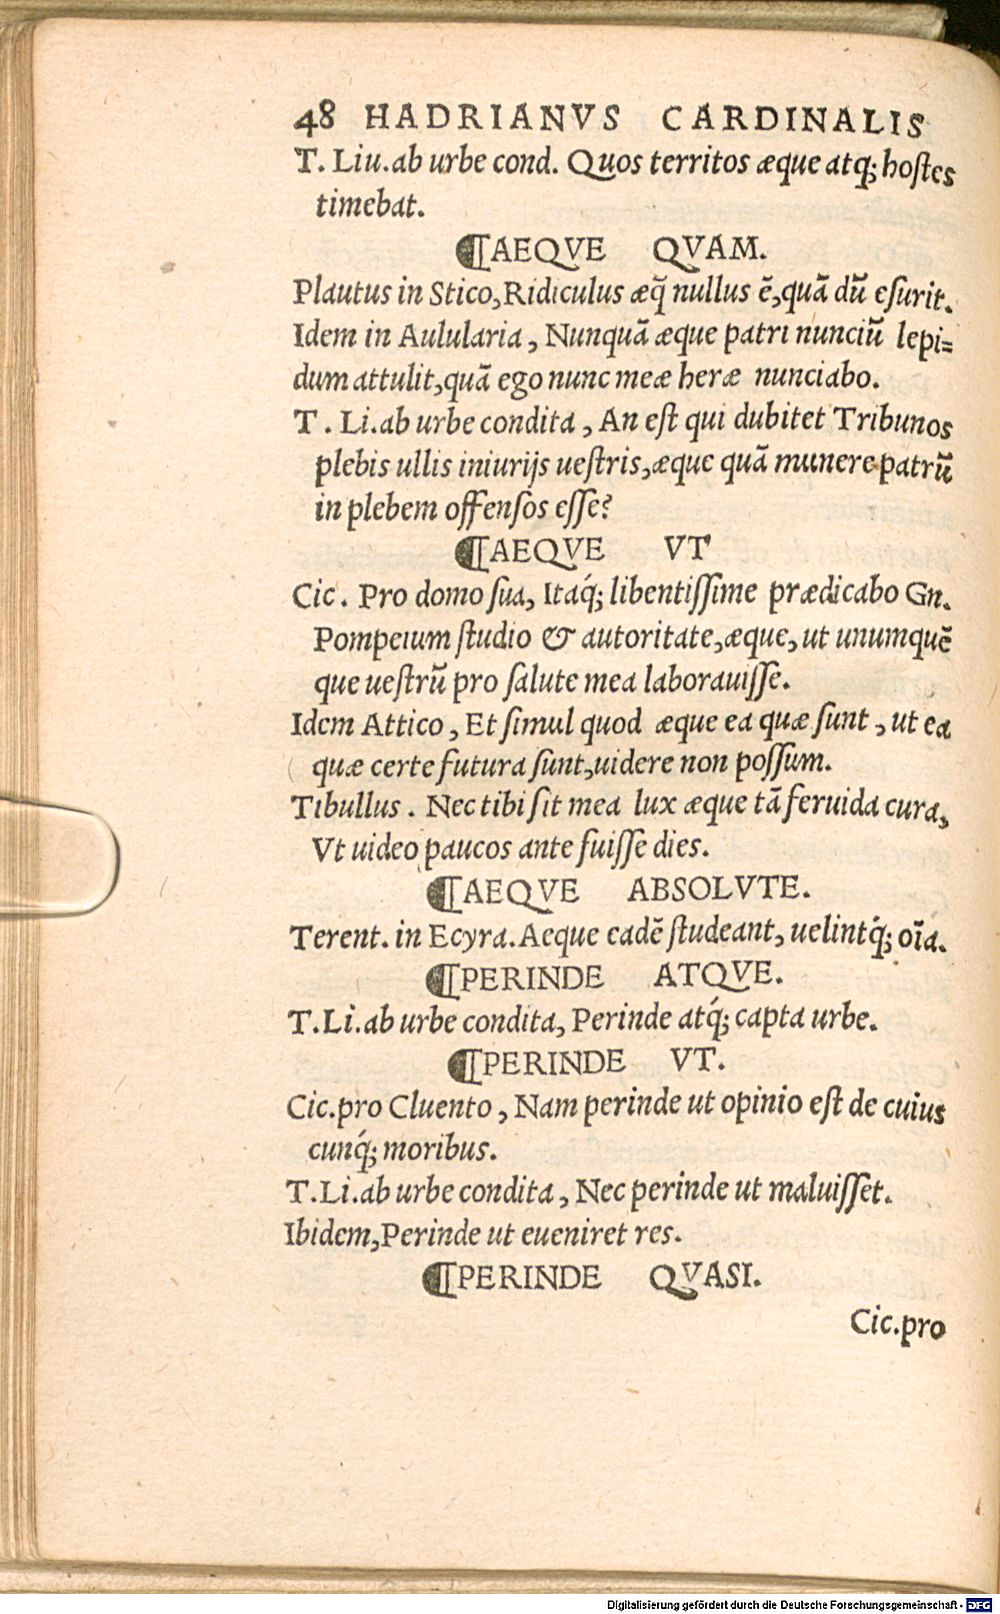 48 HADRIANVS CARDINALIS
T. Liu. ab urbe cond. Quos territos æque atq; hoſtes
timebat.
¶AEQVE QVAM.
Plautus in Stico, Ridiculus æq̃ nullus ẽ, quã dũ eſurit.
Idem in Aulularia, Nunquã æque patri nunciũ lepi=
dum attulit, quã ego nunc meæ heræ nunciabo.
T. Li. ab urbe condita, An eſt qui dubitet Tribunos
plebis ullis iniurijs ueſtris, æque quã munere patrũ
in plebem offenſos eſſe?
¶AEQVE VT
Cic. Pro domo ſua, Itaq́; libentiſſime prædicabo Gn.
Pompeium ſtudio & autoritate, æque, ut unumquẽ
que ueſtrũ pro ſalute mea laborauiſſe.
Idem Attico, Et ſimul quod æque ea quæ ſunt, ut ea
quæ certe futura ſunt, uidere non poſſum.
Tibullus. Nec tibi ſit mea lux æque tã feruida cura,
Vt uideo paucos ante fuiſſe dies.
¶AEQVE ABSOLVTE.
Terent. in Ecyra. Aeque eadẽ ſtudeant, uelintq́; oĩa.
¶PERINDE ATQVE.
T. Li. ab urbe condita, Perinde atq́; capta urbe.
¶PERINDE VT.
Cic. pro Cluento, Nam perinde ut opinio eſt de cuius
cunq́; moribus.
T. Li. ab urbe condita, Nec perinde ut maluiſſet.
Ibidem, Perinde ut eueniret res.
¶PERINDE QVASI.
Cic. pro
Digitalisierung gefördert durch die Deutsche Forschungsgemeinschaft - DFG